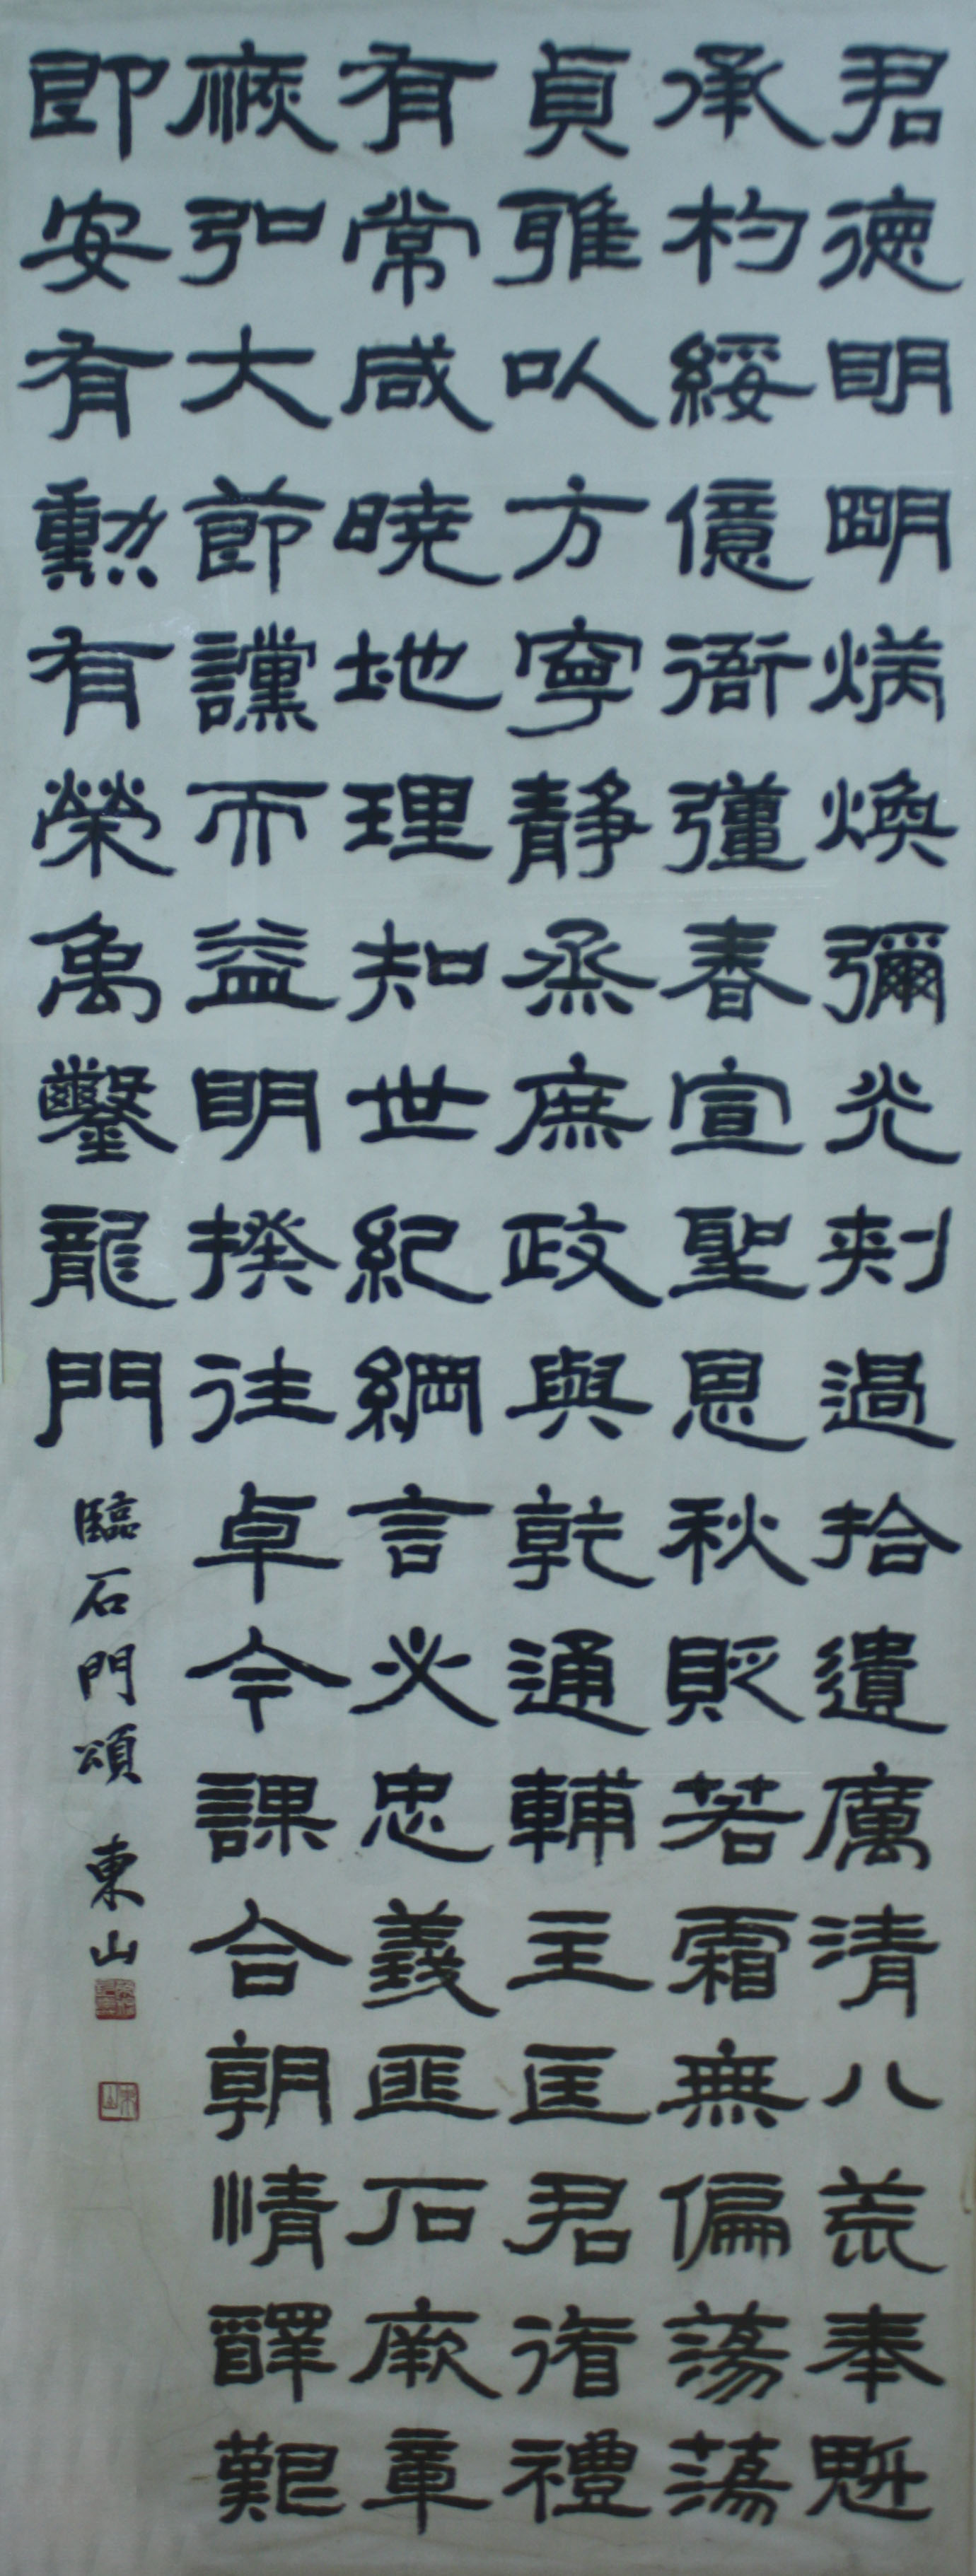 君德明明炳煥彌光刺過拾遺厲清八荒奉魁
承杓綏億衙彊春宣聖恩秋貶若霜無偏蕩蕩
貞雅以方寧靜烝庶政與乾通輔主匡君循禮
有常咸曉地理知世紀綱言必忠義匪石厥章
恢弘大節讜而益明揆往卓今謀合朝情醳艱
即安有勳有榮禹鑿龍門
臨石門頌 東山
東山